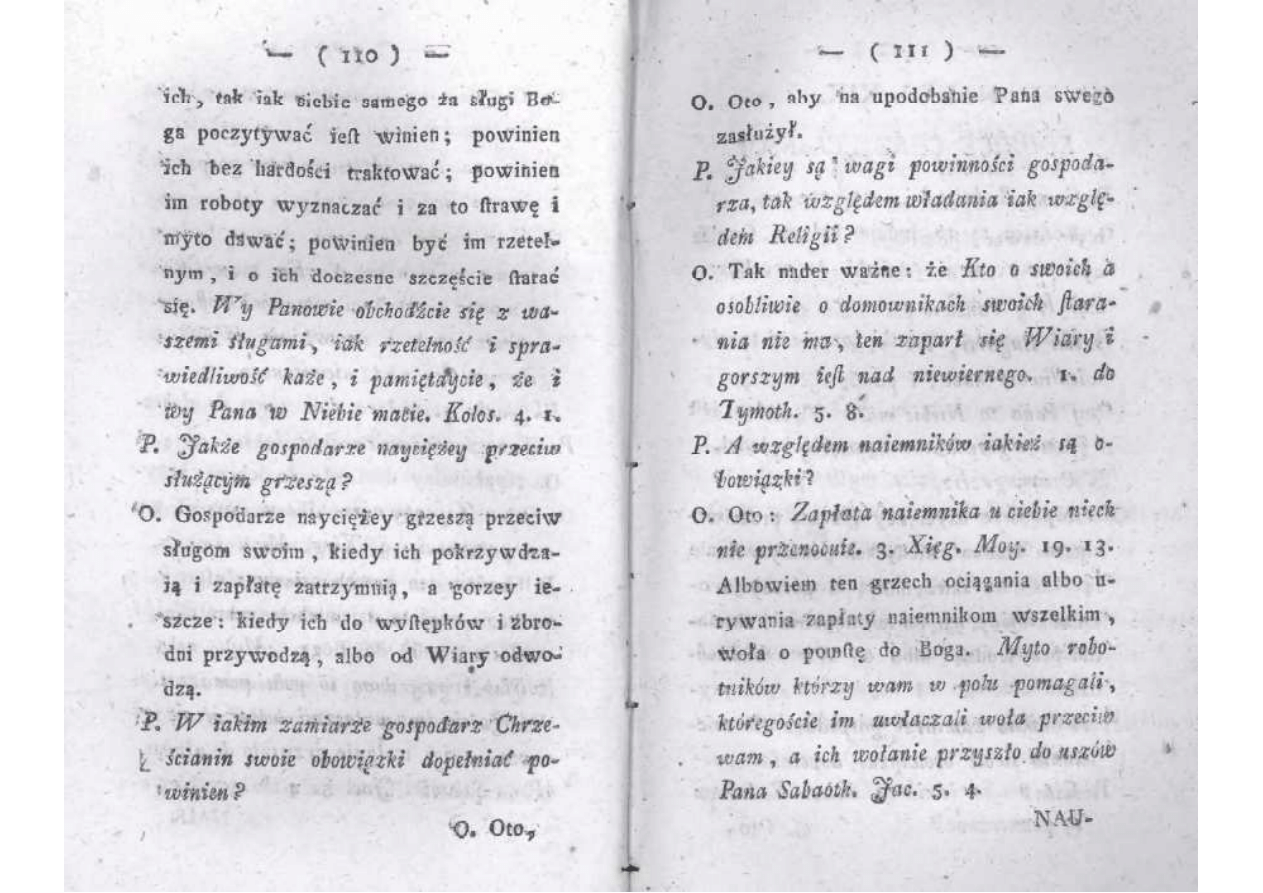 — ( 110 ) —
ich, tak iak siebie samego za sługi Bo-
ga poczytywać ieſt winien; powinien
ich bez hardości traktować; powinien
im roboty wyznaczać i za to ſtrawę i
myto dawać; powinien być im rzetel-
nym, i o ich doczesne szczęście ſtarać
się. Wy Panowie obchodźcie się z wa-
szemi sługami, iak rzetelność i spra-
wiedliwość każe, i pamiętaycie, że i
wy Pana w Niebie macie. Kolos. 4. 1.
P. Jakże gospodarze nayciężey przeciw
służącym grzeszą?
O. Gospodarze nayciężey grzeszą przeciw
sługom swoim, kiedy ich pokrzywdza-
ią i zapłatę zatrzymuią, a gorzey ie-
szcze: kiedy ich do wyſtępków i zbro-
dni przywodzą, albo od Wiary odwo-
dzą.
P. W iakim zamiarze gospodarz Chrze-
ścianin swoie obowiązki dopełniać po-
winien?
O. Oto,
— ( 111 ) —
O. Oto, aby na upodobanie Pana swego
zasłużył.
P. Jakiey są wagi powinności gospoda-
rza, tak względem władania iak wzglę-
dem Religii?
O. Tak nader ważne: że Kto o swoich a
osobliwie o domownikach swoich ſtara-
nia nie ma, ten zaparł się Wiary i
gorszym ieſt nad niewiernego. 1. do
Tymoth. 5. 8.
P. A względem naiemników iakież są o-
bowiązki?
O. Oto: Zapłata naiemnika u ciebie niech
nie przenocuie. 3. Xięg. Moy. 19. 13.
Albowiem ten grzech ociągania albo u-
rywania zapłaty naiemnikom wszelkim,
woła o pomſtę do Boga. Myto robo-
tników którzy wam w polu pomagali,
któregoście im uwłaczali woła przeciw
wam, a ich wołanie przyszło do uszów
Pana Sabaoth. Jac. 5. 4.
NAU-